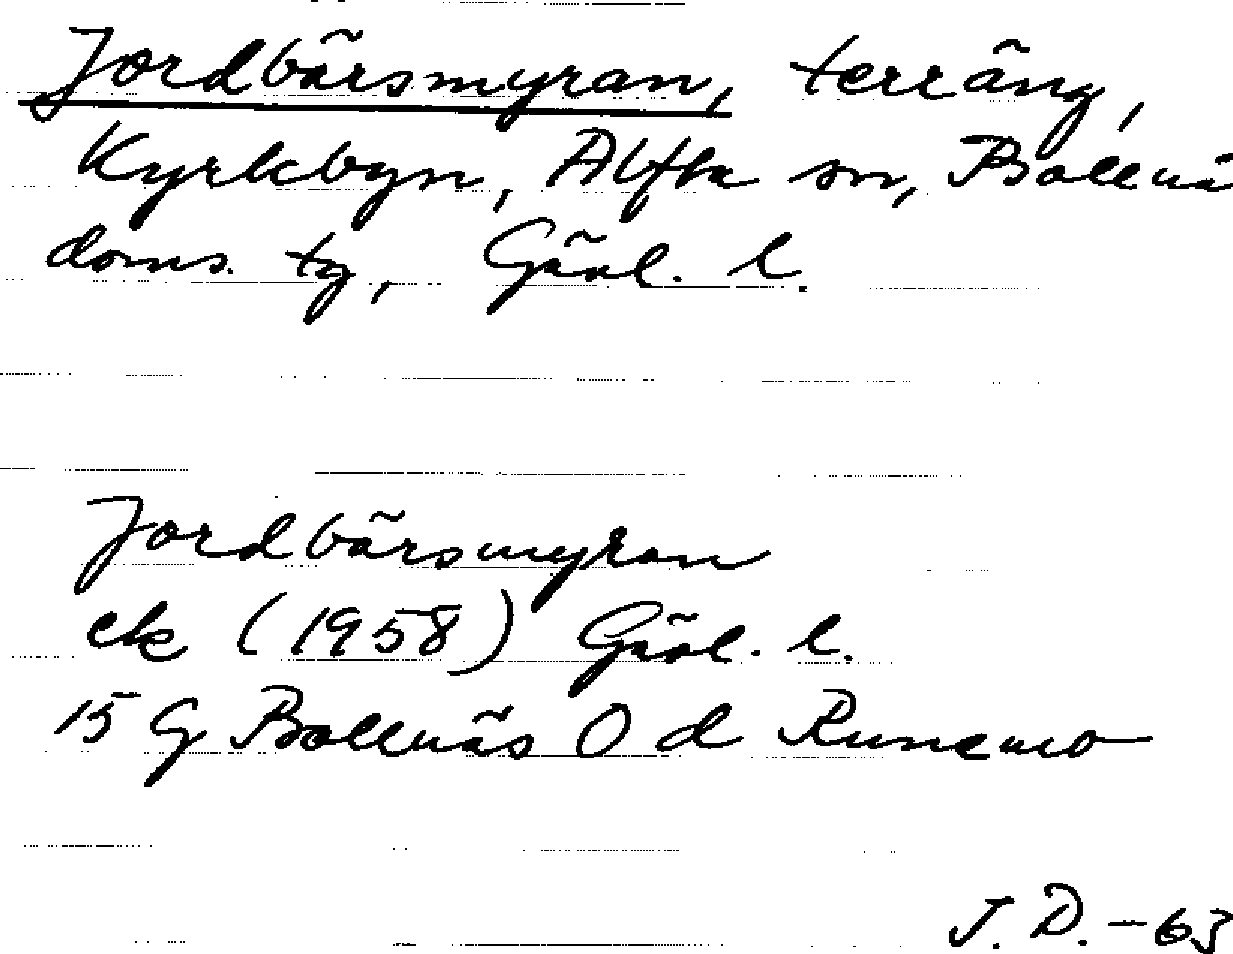 Jordbärsmyran, terräng,
Kyrkbyn, Alfta sn, Bollnä
doms. tg, Gävl. l.
Jordbärsmyran
ek (1958) Gävl. l.
15 G Bollnäs O d Runemo
J. D. - 63